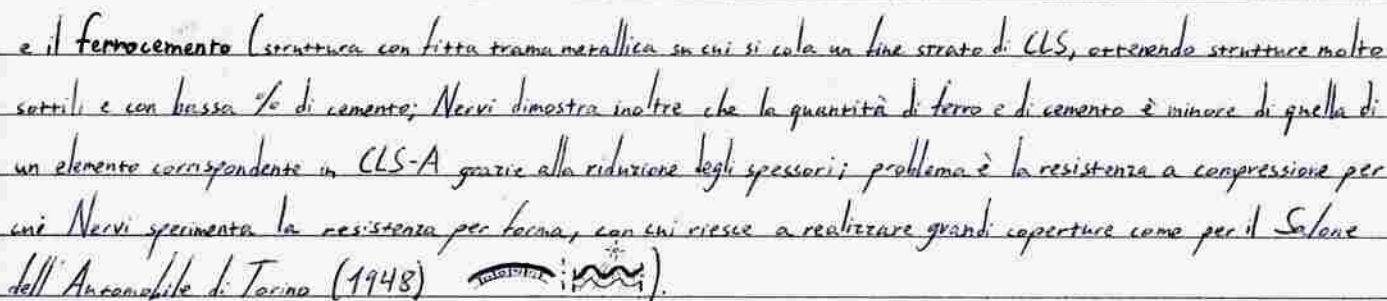 e il ferrocemento (struttura con fitta trama metallica su cui si cola un fine strato di CLS, ottenendo strutture molto
sottili e con bassa % di cemento; Nervi dimostra inoltre che la quantità di ferro e di cemento è minore di quella di
un elemento corrispondente in CLS-A grazie alla riduzione degli spessori; problema è la resistenza a compressione per
cui Nervi sperimenta la resistenza per forma, con cui riesce a realizzare grandi coperture come per il Salone
dell'Automobile di Torino (1948) ).